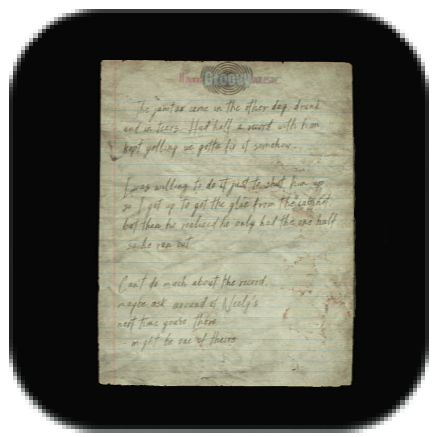 Groovy MUSIC
The janitor came in the other day, drunk
and in tears. Had half a record with him
kept yelling we gotta fix it somehow.
I was willing to do it just to shut him up
so I got up to get the glue from the cabinet
but then he realised he only had the one half
so he ran out
Can't do much about the record.
maybe ask around at Neely's
next time you're there
might be one of theirs